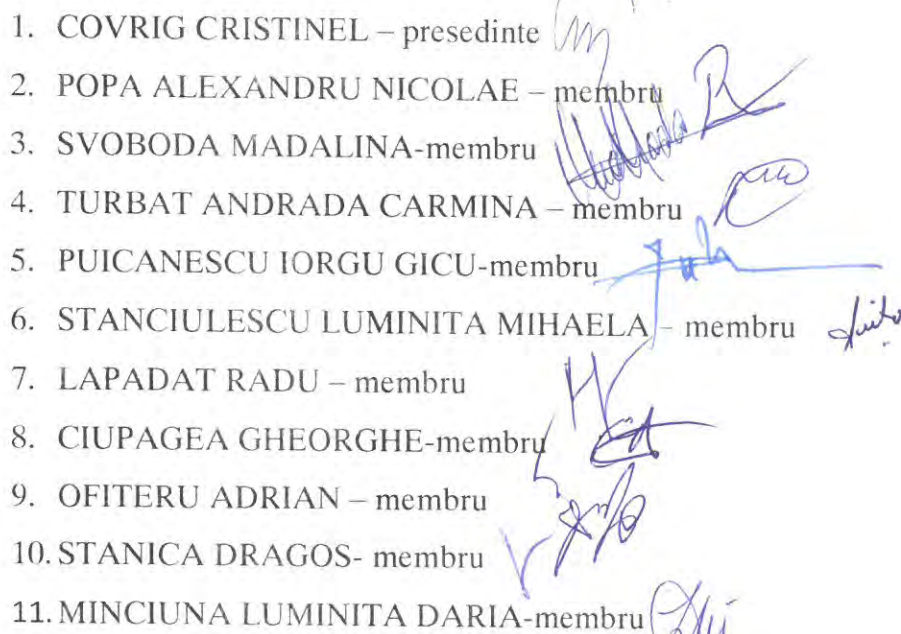 1. COVRIG CRISTINEL – presedinte
2. POPA ALEXANDRU NICOLAE – membru
3. SVOBODA MADALINA-membru
4. TURBAT ANDRADA CARMINA – membru
5. PUICANESCU IORGU GICU-membru
6. STANCIULESCU LUMINITA MIHAELA – membru
7. LAPADAT RADU – membru
8. CIUPAGEA GHEORGHE-membru
9. OFITERU ADRIAN – membru
10. STANICA DRAGOS- membru
11. MINCIUNA LUMINITA DARIA-membru